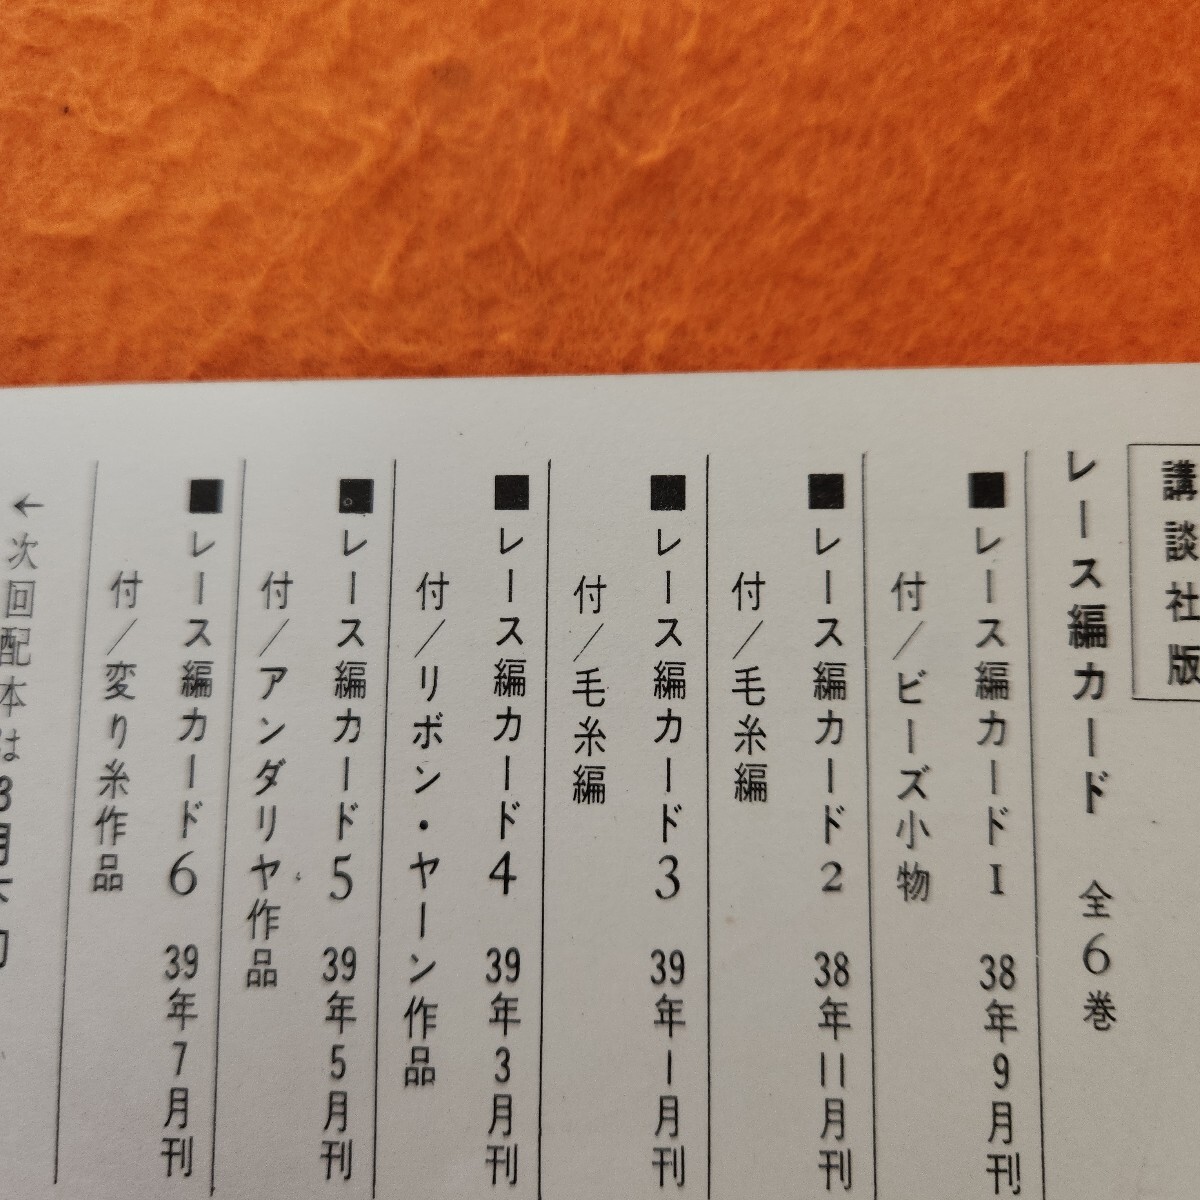 講談社版
レース編カード 全6巻
■レース編カード1 38年9月刊
付/ビーズ小物
■レース編カード2 38年11月刊
付/毛糸編
■レース編カード3 39年1月刊
付/毛糸編
■レース編カード4 39年3月刊
付/リボン・ヤーン作品
■レース編カード5 39年5月刊
付/アンダリヤ作品
■レース編カード6 39年7月刊
付/変り糸作品
←次回配本は3月